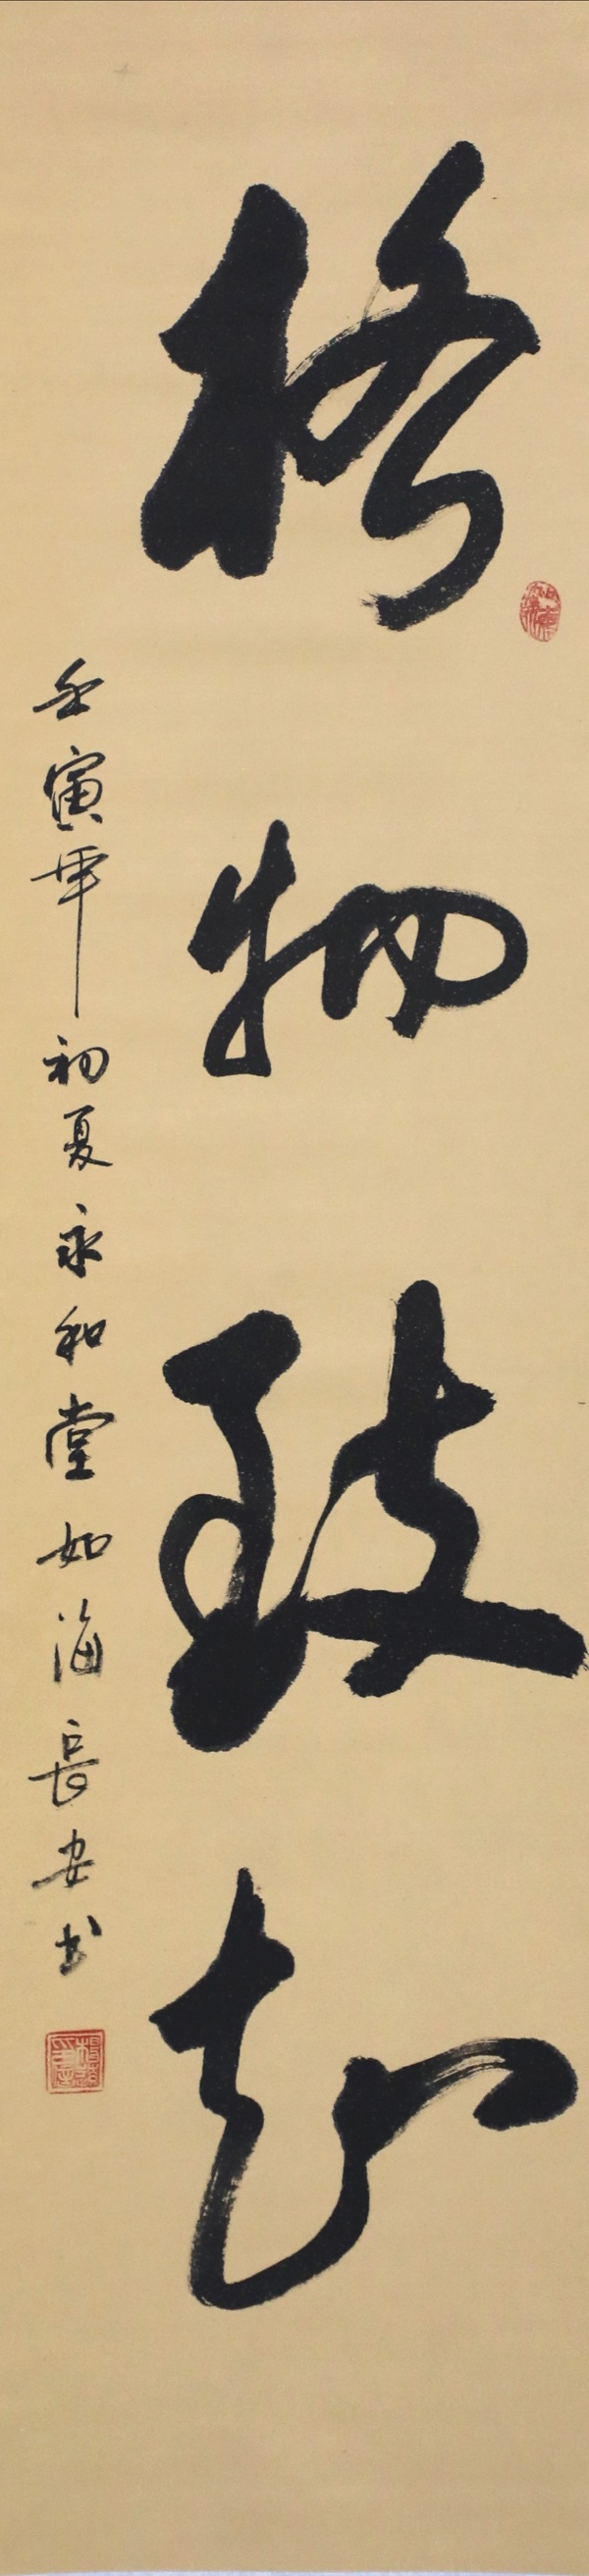 格物致知
壬寅年初夏永和堂如海長安书